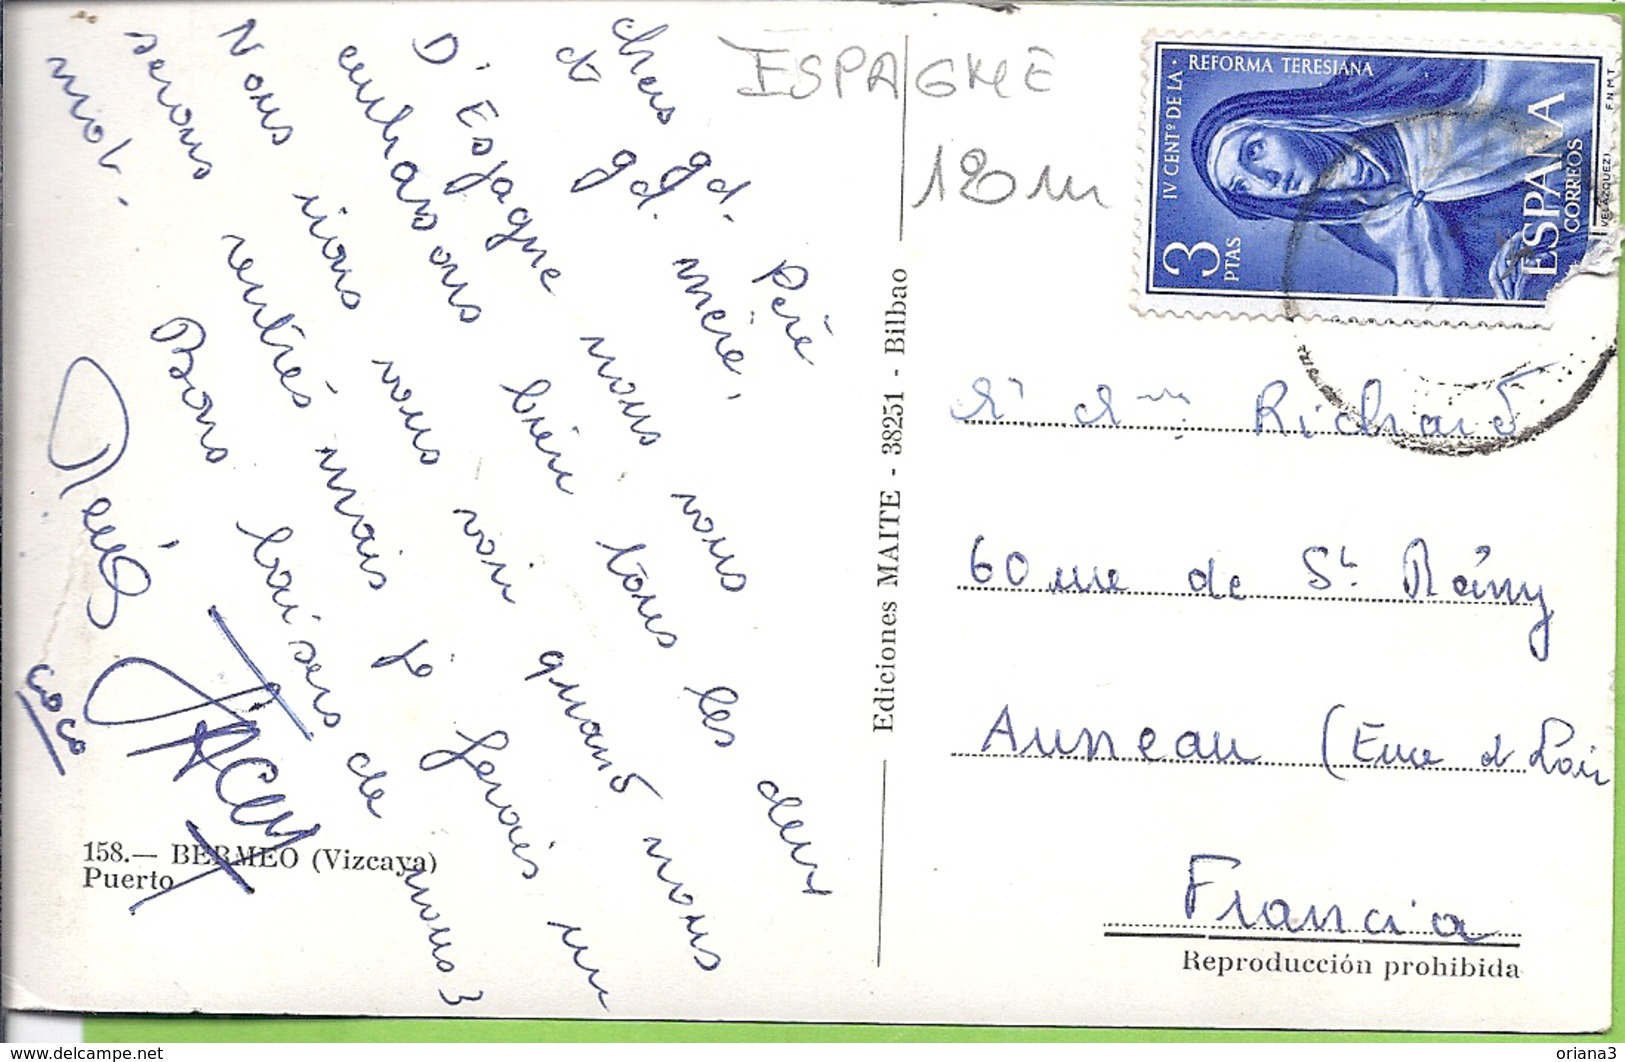 chers gd. Père
et gd. mère.
D'Espagne nous vous
embrassons bien tous les deux
Nous irons vous voir quand nous
serons rentrés mais je ferais un
mot.
Bons baisers de nous 3
coco
158.— BERMEO (Vizcaya)
Puerto
Ediciones MAITE - 38251 - Bilbao
ESPAGNE
180m
IV CENTº DE LA · REFORMA TERESIANA
3 PTAS
ESPAÑA
CORREOS
VELAZQUEZ
F.N.M.T.
Richard
60 rue de St Rémy
Auneau (Eure et Loir
Francia
Reproducción prohibida
delcampe.net
oriana3